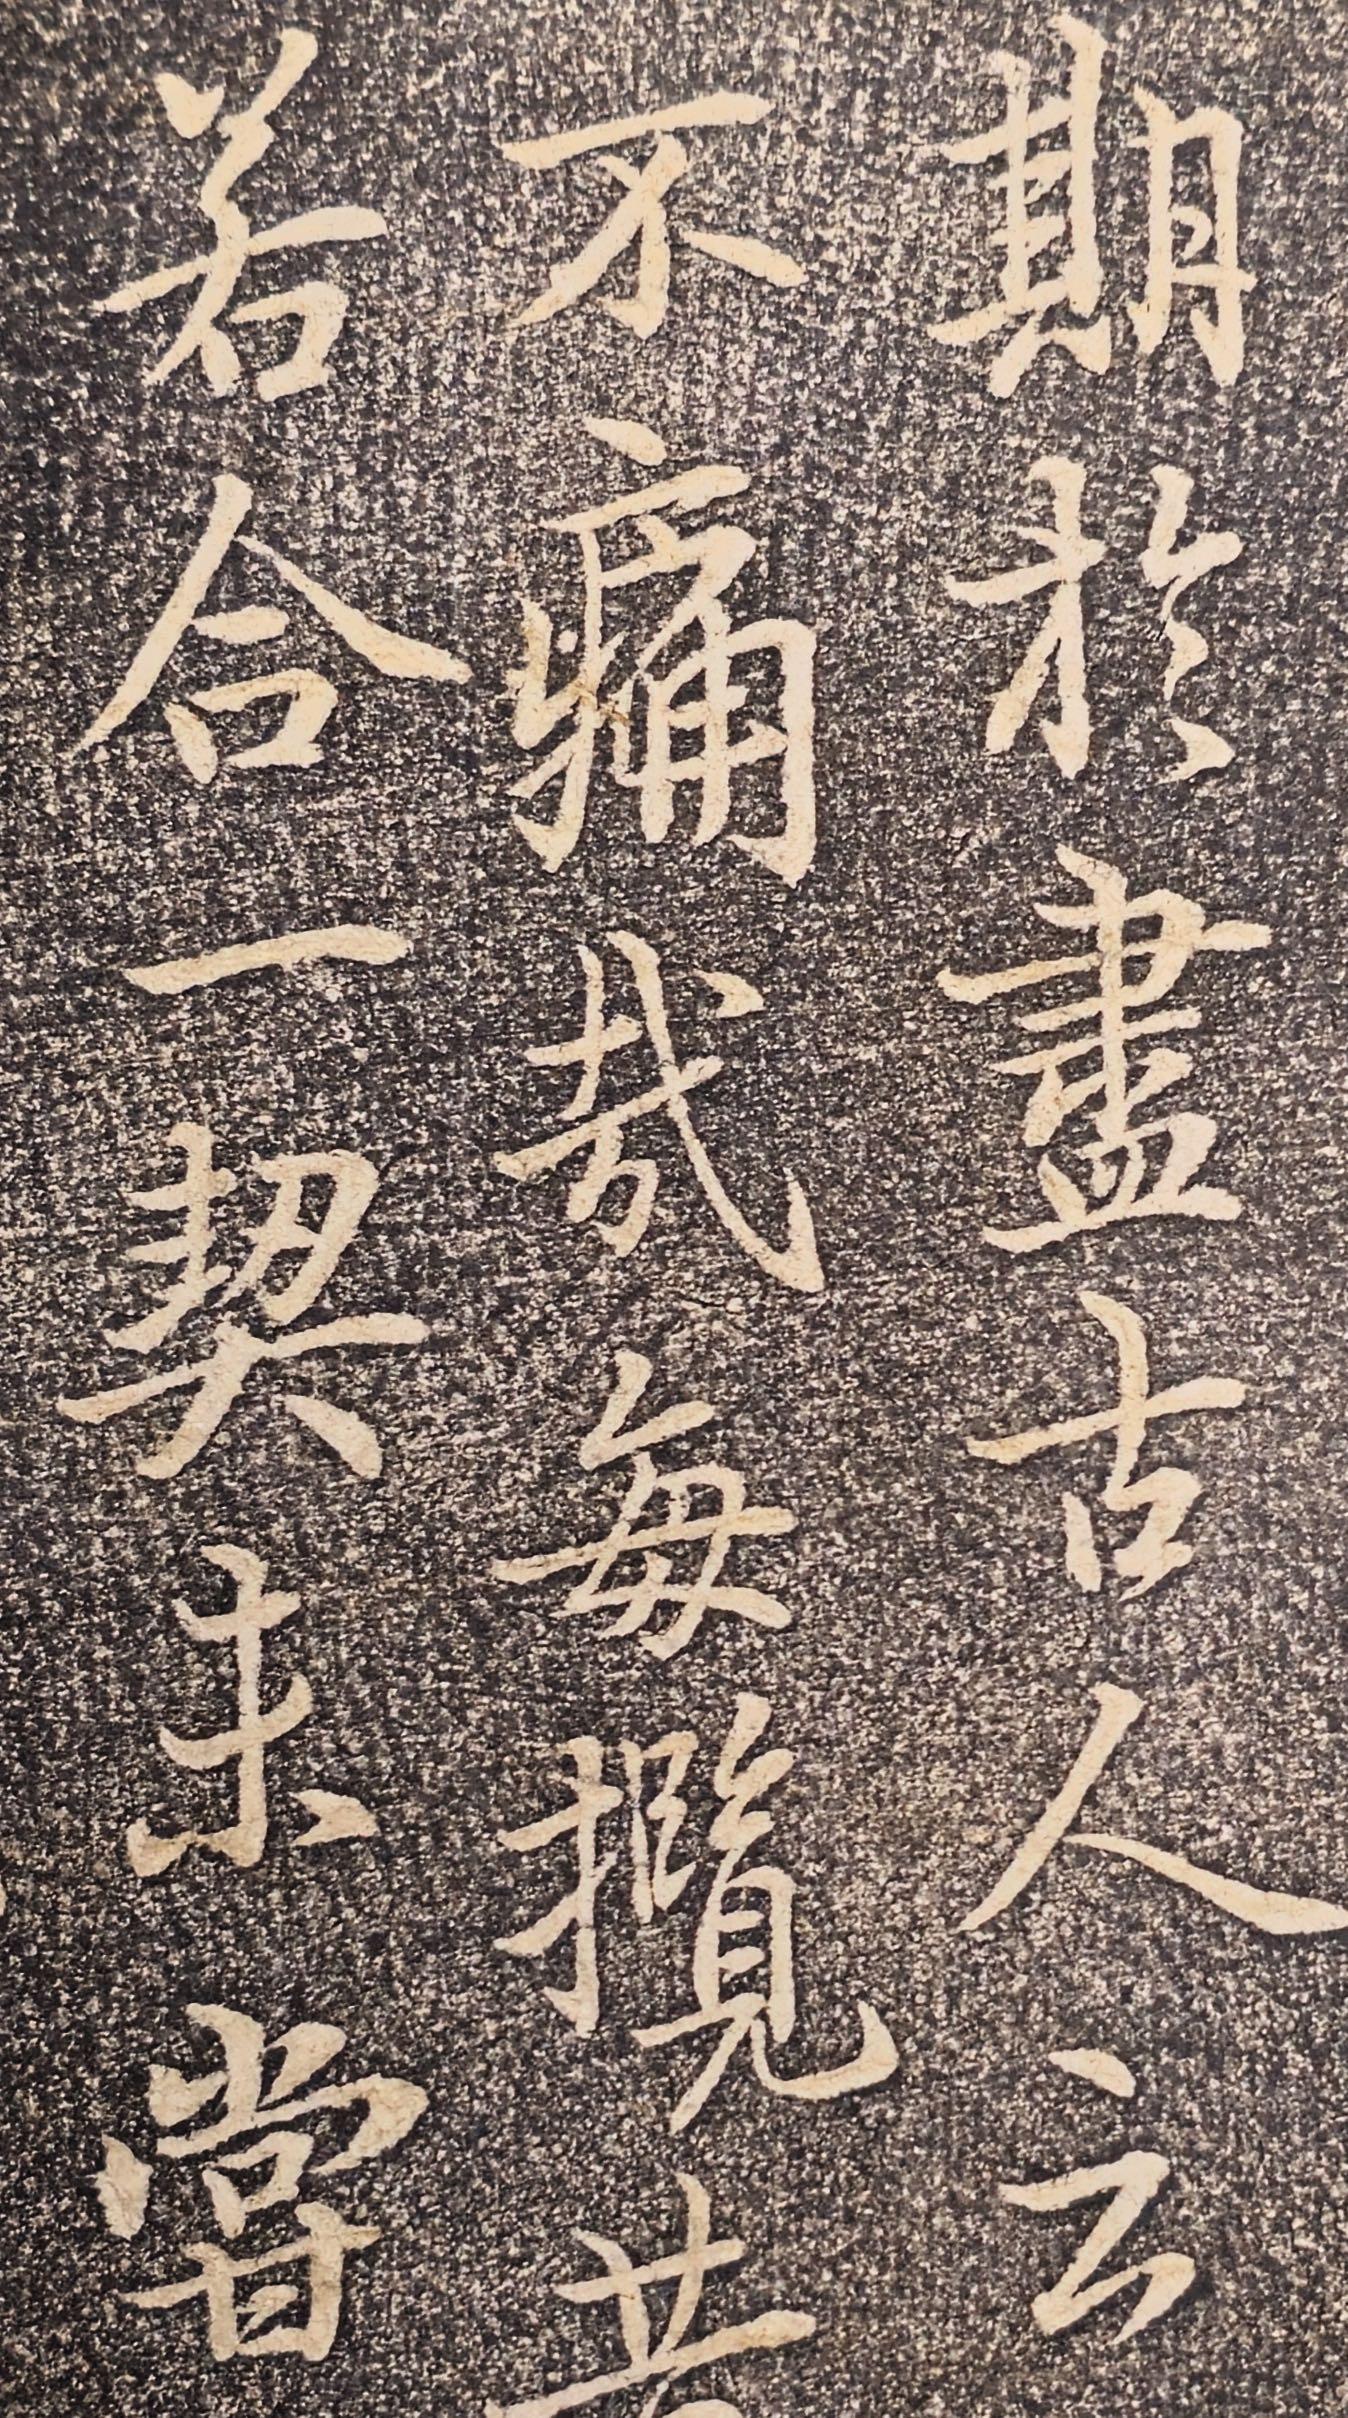 期於盡古人云
不痛哉每攬昔
若合一契未嘗